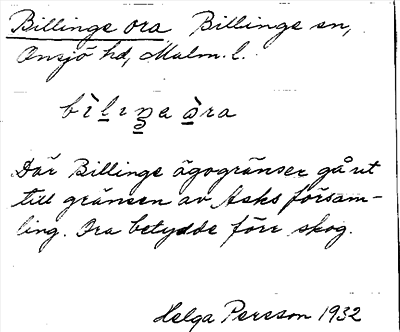 Billinge ora Billinge sn,
Onsjö hd, Malm. l.
bìlıŋa òra
Där Billinge ägogränser gå ut
till gränsen av Asks försam-
ling. Ora betydde förr skog.
Helga Persson 1932